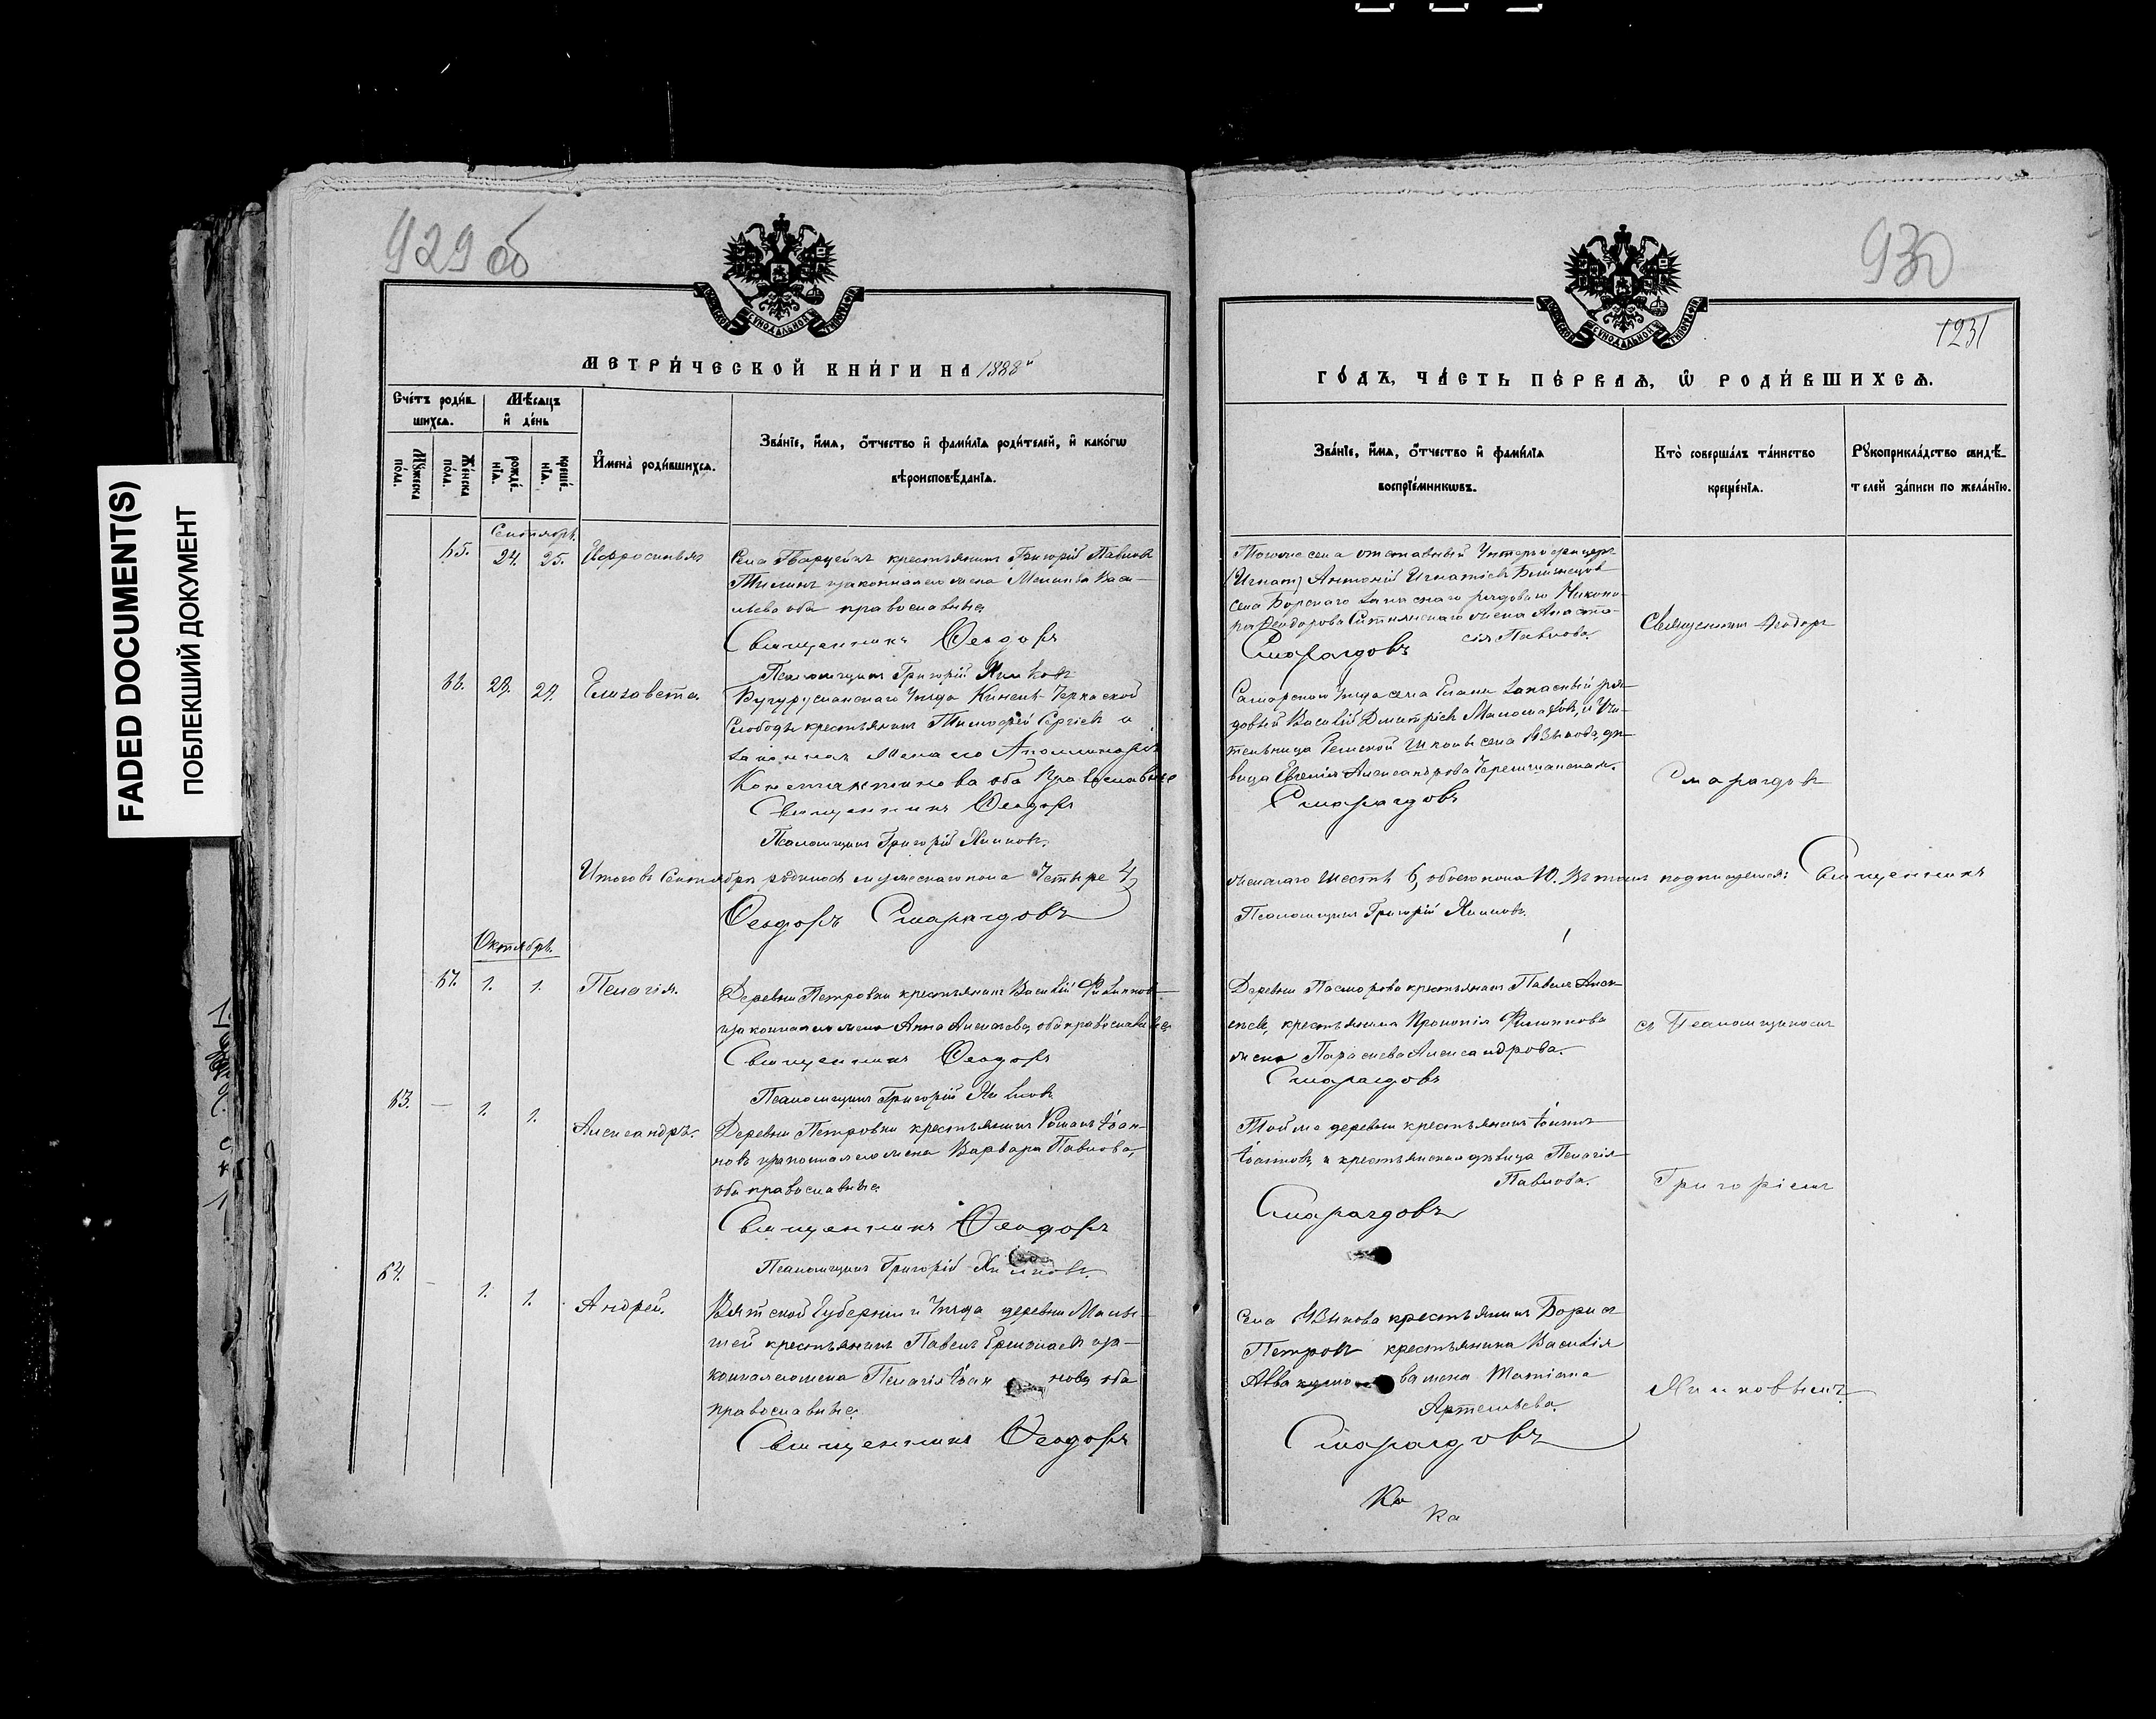 FADED DOCUMENT(S)
ПОБЛЕКШИЙ ДОКУМЕНТ
929 об
930
1231
МЕТРИ́ЧЕСКОЙ КНИ́ГИ НА 1888й
ГО́ДЪ, ЧА́СТЬ ПЕ́РВАЯ, Ѡ РОДИ́ВШИХСЯ.
Сче́тъ роди́в-
шихся.
Мꙋ́жеска по́ла.
Же́нска по́ла.
Мѣ́сяцъ
и де́нь
рожде́нїя.
креще́нїя.
И҆мена̀ роди́вшихся.
Зва́нїе, и҆́мя, ѻ҆́тчество и҆ фами́лїя роди́телей, и҆ како́гѡ
вѣроисповѣ́данїя.
Зва́нїе, и҆́мя, ѻ҆́тчество и҆ фами́лїя
воспрїе́мникѡвъ.
Кто̀ соверша́лъ та́инство
креще́нїя.
Рꙋкоприкла́дство свидѣ́-
телей за́писи по жела́нїю.
Сентябрь.
65. 24. 25. Ефросинья
крестьянинъ Григорій Павловъ
законная его жена Васи-
льева оба православные
Священникъ Ѳеодоръ
Псаломщикъ Григорій
Тогоже села отставный Унтеръ офицеръ
(Игнат) Антоній Игнатіевъ
села Борскаго запаснаго рядоваго Никано-
ра Ѳеодорова жена Анаста-
сія Павлова.
Смарагдовъ
Священникъ Ѳеодоръ
66. 29. 29. Елизавета.
Бугурусланскаго Уѣзда Кинель-Черкаской
Слободы крестьянинъ Тимофей Сергіевъ и
законная жена его Аполлинарія
Константинова оба православные
Священникъ Ѳеодоръ
Псаломщикъ Григорій
Самарскаго Уѣзда села Елани запасный ря-
довый Василій Дмитріевъ и Учи-
тельница Земской школы села Языкова, дѣ-
вица Евгенія Александрова
Смарагдовъ
Смарагдовъ
Итого въ Сентябрѣ родилось мужескаго пола Четыре 4,
женскаго шесть 6, обоего пола 10. Въ томъ подписуемся: Священникъ
Ѳеодоръ Смарагдовъ
Псаломщикъ Григорій
Октябрь.
67. 1. 1. Пелагія.
Деревни Петровки крестьянинъ Василій Филипповъ
и законная его жена Анна Алексѣева, оба православные
Священникъ Ѳеодоръ
Псаломщикъ Григорій
крестьянинъ Павелъ Алек-
сѣевъ, крестьянина Прокопія Филиппова
жена Параскева Александрова.
Смарагдовъ
съ Псаломщикомъ
63. — 1. 1. Александръ.
Деревни Петровки крестьянинъ Романъ Іоан-
новъ и законная его жена Варвара Павлова,
оба православные
Священникъ Ѳеодоръ
Псаломщикъ Григорій
Той же деревни крестьянинъ Іоаннъ
Іоанновъ, и крестьянская дѣвица Пелагія
Павлова.
Смарагдовъ
Григоріемъ
64. — 1. 1. Андрей.
Вятской Губерніи и Уѣзда деревни
крестьянинъ Павелъ и за-
конная его жена Пелагія Іоаннова, оба
православные
Священникъ Ѳеодоръ
Села Языкова крестьянинъ Борисъ
Петровъ крестьянина Василія
Аввакумова жена Татіана
Артемьева.
Смарагдовъ
Ка
Ка